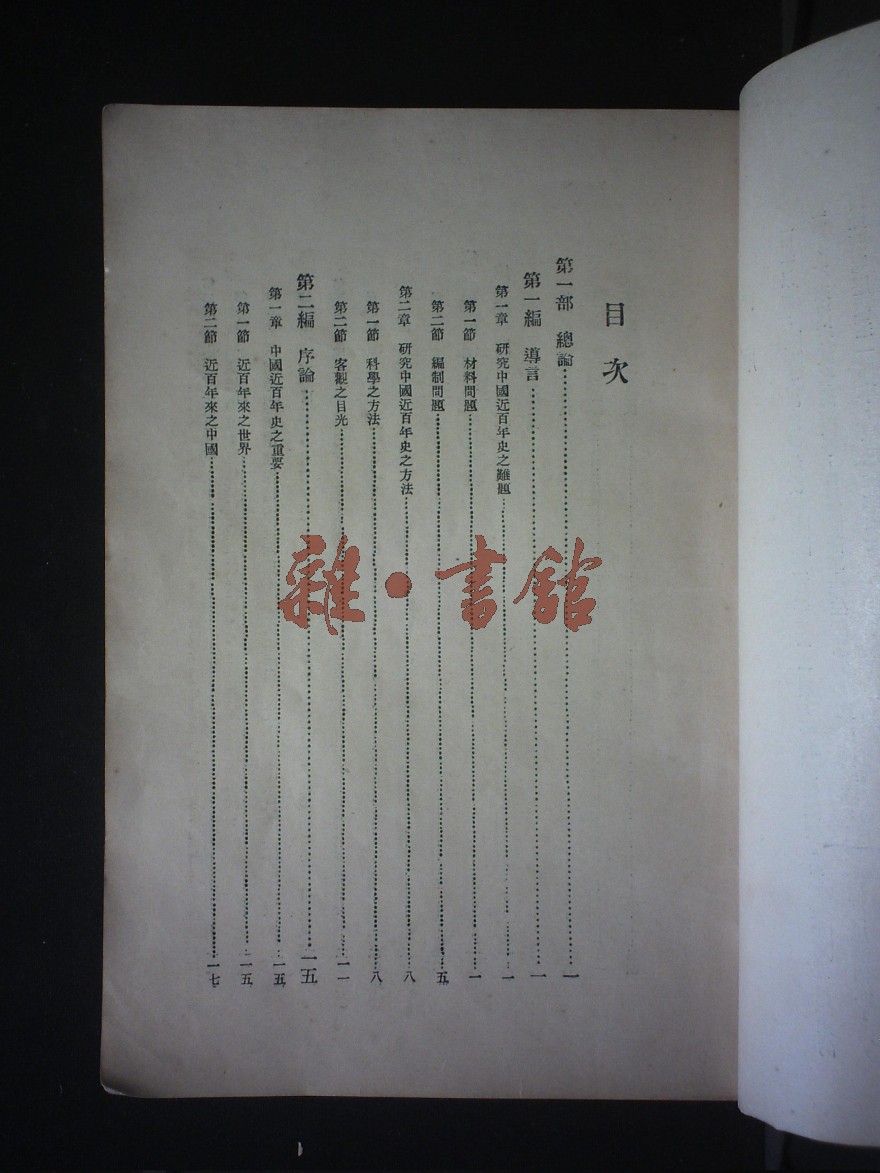 目次
第一部　總論……一
第一編　導言……一
第一章　研究中國近百年史之難題……一
第一節　材料問題……一
第二節　編制問題……五
第二章　研究中國近百年史之方法……八
第一節　科學之方法……八
第二節　客觀之目光……一一
第二編　序論……一五
第一章　中國近百年史之重要……一五
第一節　近百年來之世界……一五
第二節　近百年來之中國……一七
雜·書館